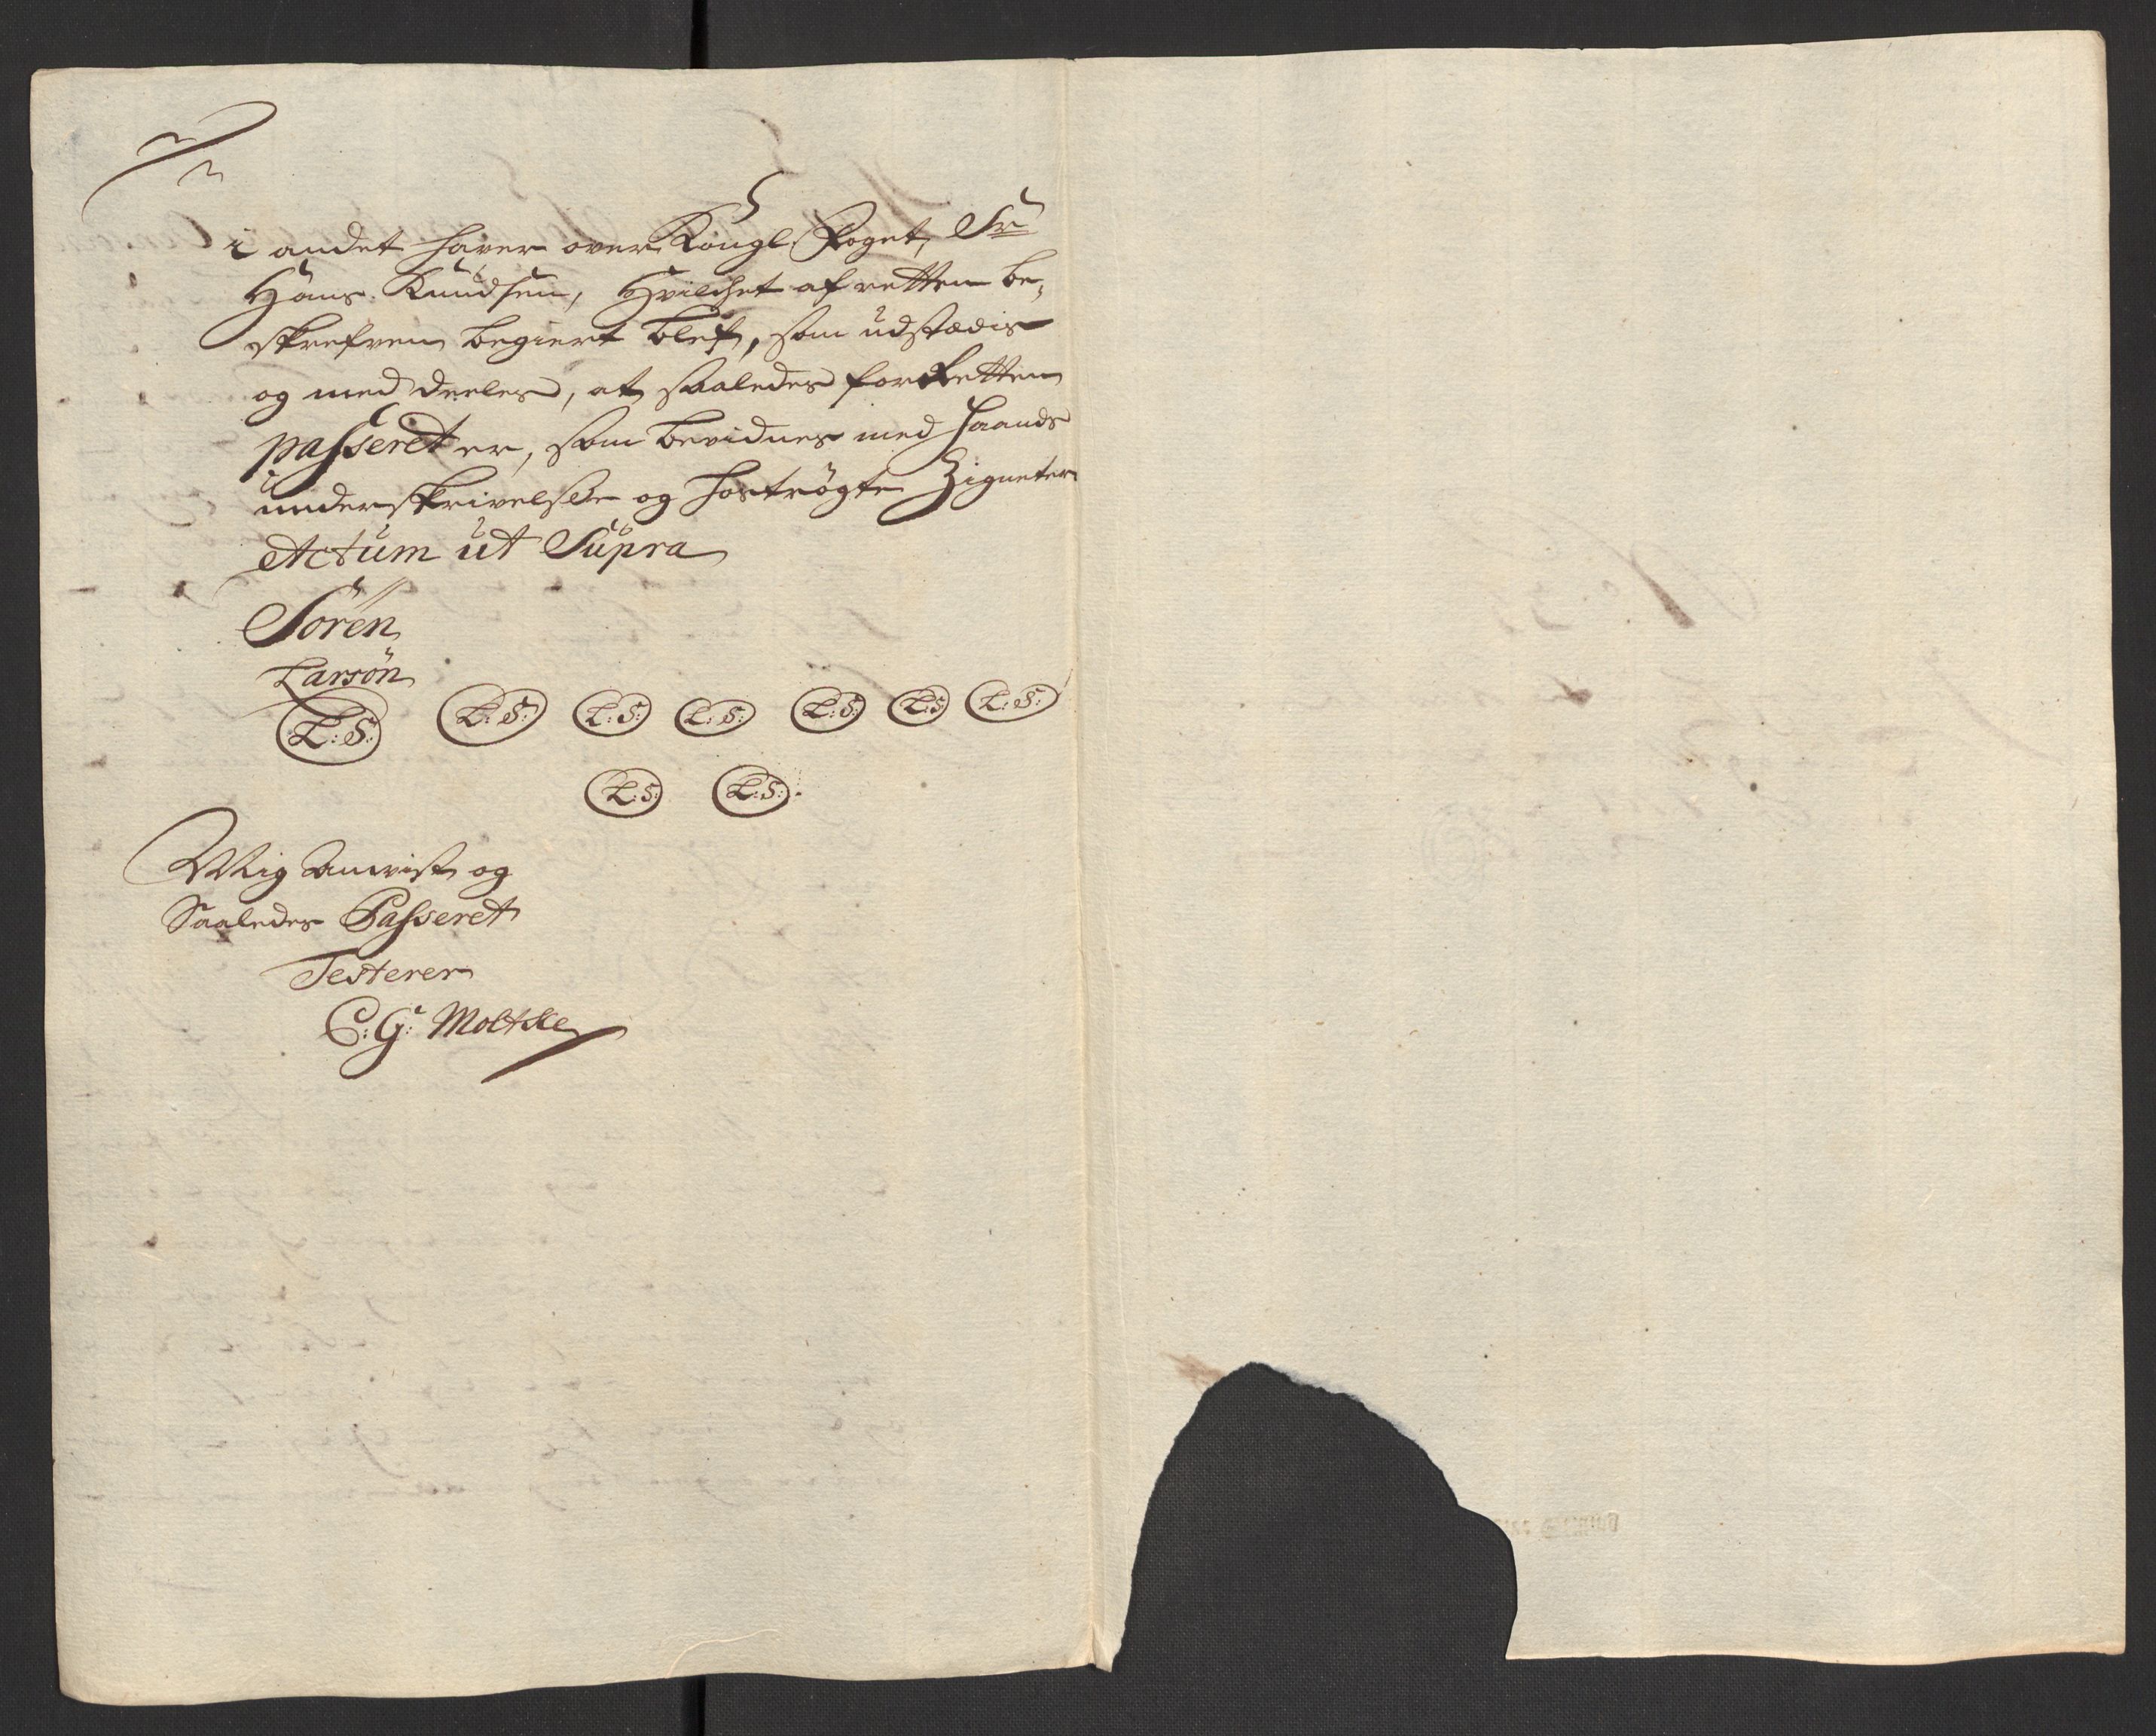 i andet hafver over Kongl: Foget, Sr
Hans Knudsen, Hvilchet af retten be„
skrefven begiert blef, som udstædis
og med deeles, at saaledes for Retten
passeret er, som bevidnes med haands
underskrivelse og hoströgte Zigneter
Actum ut Supra
Sören
Larsön
L:S: L:S: L:S: L:S: L:S: L:S L:S:
L:S: L:S:
Mig Anvist og
Saaledes Passeret
Testerer
C:G: Moltke